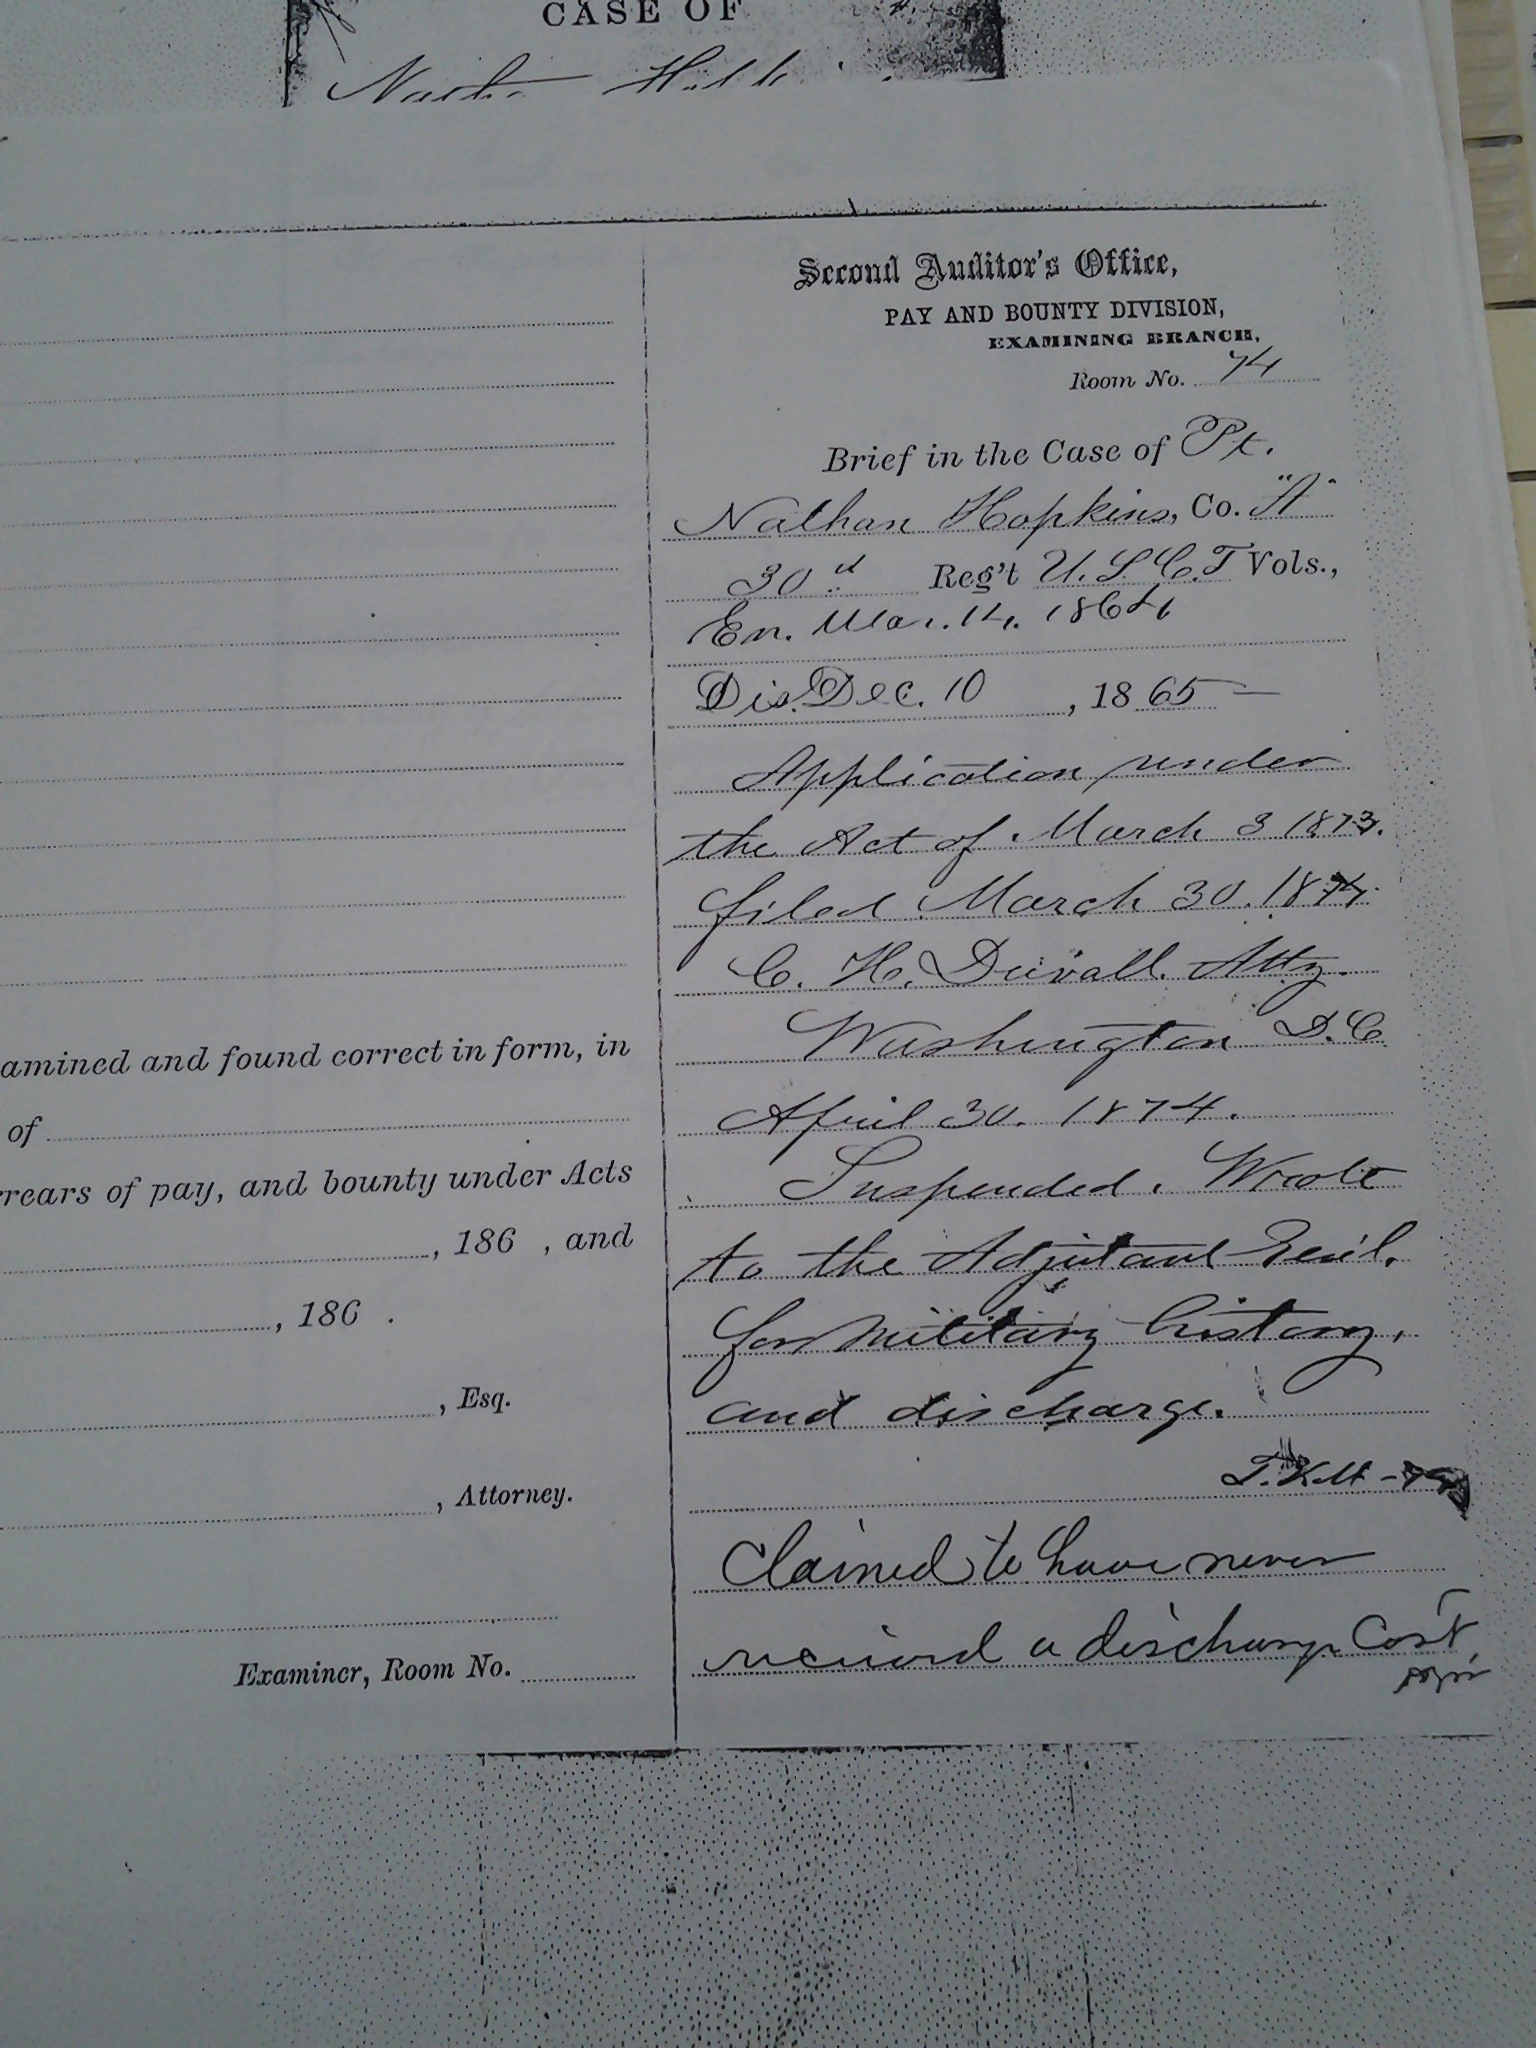 CASE OF
Second Auditor's Office,
PAY AND BOUNTY DIVISION,
EXAMINING BRANCH,
Room No. 74
Brief in the Case of Pt.
Nathan Hopkins, Co. "A"
30d Reg't U.S.C.T Vols.,
En. Mar. 14. 1864
Dis. Dec. 10, 1865
Application under
the Act of March 3 1873.
filed March 30. 1874.
C. H. Duvall. Atty.
Washington D.C
April 30. 1874.
Suspended. Wrote
to the Adjutant Genl.
for military history,
and discharge.
Claimed to have never
received a discharge Cost
amined and found correct in form, in
of
rrears of pay, and bounty under Acts
, 186 , and
, 186 .
, Esq.
, Attorney.
Examiner, Room No.